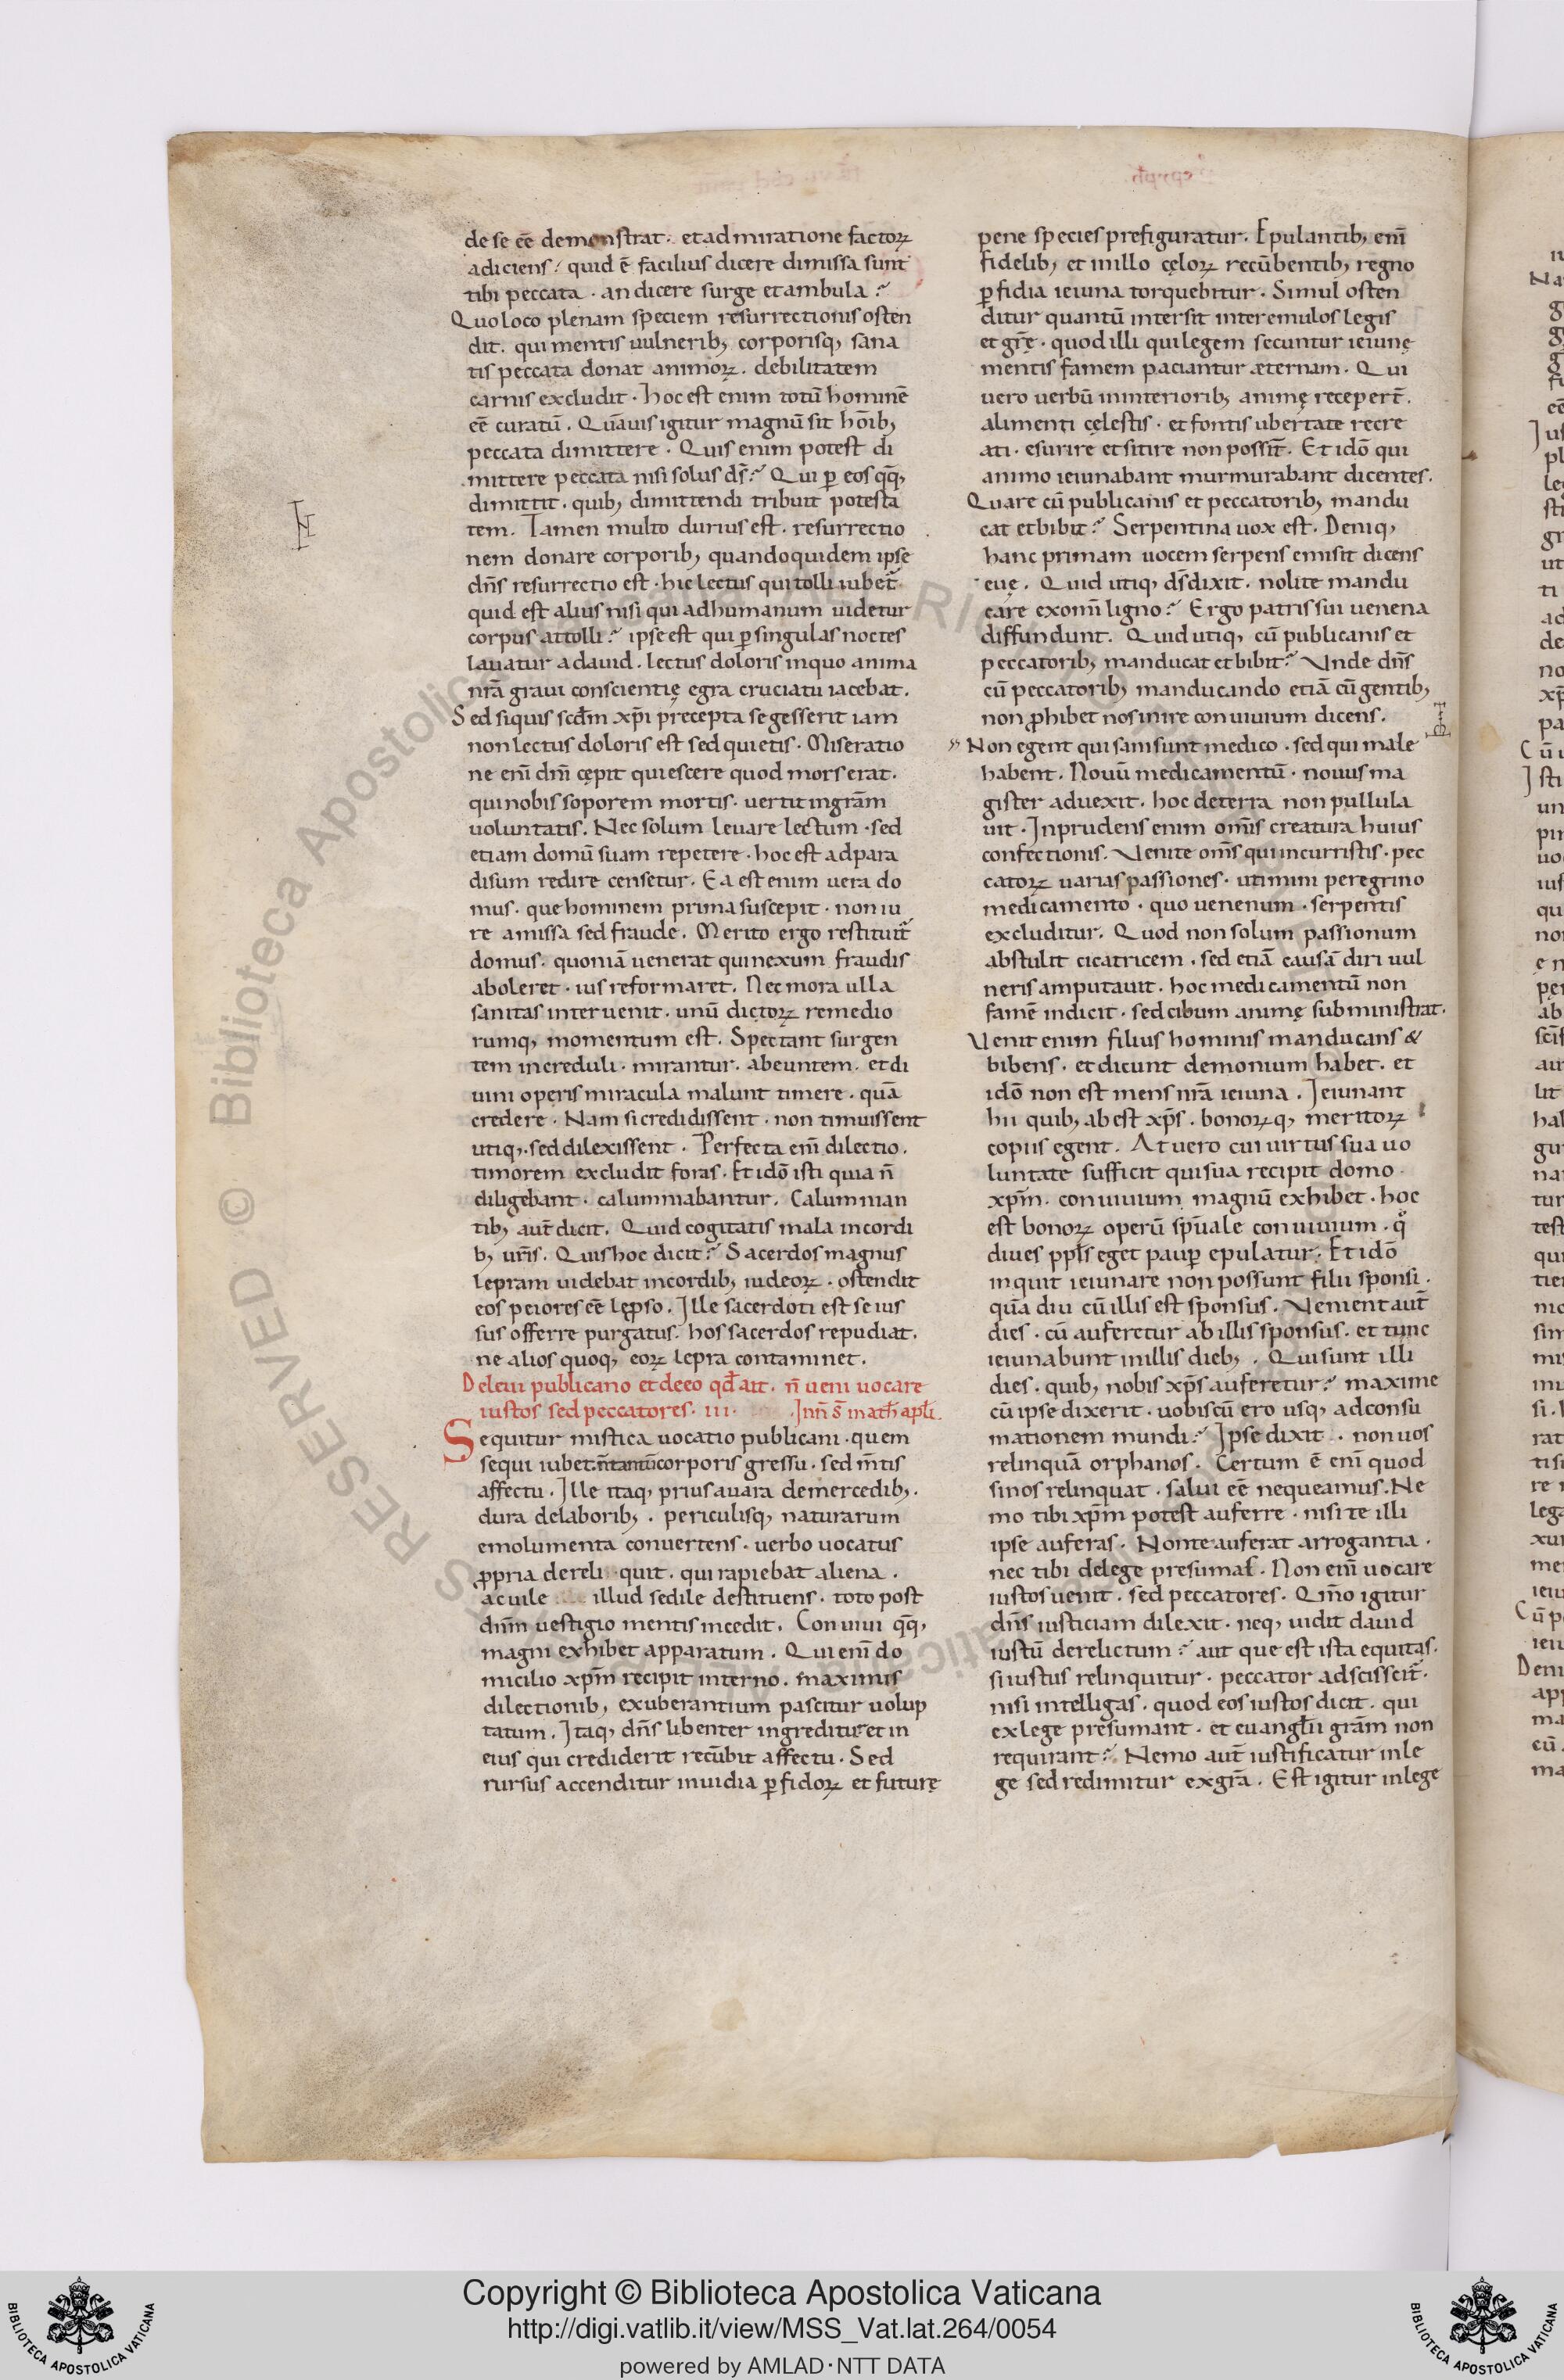 de se eē demonstrat· et ad miratione factoꝝ
adiciens· quid ē facilius dicere dimissa sunt
tibi peccata· an dicere surge et ambula?
Quo loco plenam speciem resurrectionis osten
dit· qui mentis uulneribꝫ corporisqꝫ sana
tis peccata donat animoꝝ· debilitatem
carnis excludit· hoc est enim totū hominē
eē curatū. Quāuis igitur magnū sit hoībꝫ
peccata dimittere· Quis enim potest di
mittere peccata nisi solus ds̄? Qui ꝑ eos qꝗꝫ
dimittit· quibꝫ dimittendi tribuit potesta
tem. Tamen multo durius est· resurrectio
nem donare corporibꝫ quandoquidem ipse
dn̄s resurrectio est· hic lectus qui tolli iubet̄·
quid est alius nisi qui ad humanum uidetur
corpus attolli? ipse est qui ꝑ singulas noctes
lauatur a dauid. lectus doloris in quo anima
nrā graui conscientię egra cruciatu iacebat.
Sed siquis scdm̄ xp̄i precepta se gesserit iam
non lectus doloris est sed quietis· Miseratio
ne eni̅ dn̄i cępit quiescere quod mors erat·
qui nobis soporem mortis· uertit in grām
uoluntatis. Nec solum leuare lectum· sed
etiam domū suam repetere· hoc est ad para
disum redire censetur. Ea est enim uera do
mus· que hominem prima suscepit· non iu
re amissa sed fraude. Merito ergo restituit̄
domus· quoniā uenerat qui nexum fraudis
aboleret· ius reformaret. Nec mora ulla
sanitas interuenit· unū dictoꝝ remedio
rumqꝫ momentum est. Spectant surgen
tem increduli· mirantur· abeuntem· et di
uini operis miracula malunt timere· quā
credere· Nam si credidissent· non timuissent
utiqꝫ· sed dilexissent· Perfecta eni̅ dilectio·
timorem excludit foras· Et idō isti quia n̄
diligebant· calumniabantur. Calumnian
tibꝫ aut̄ dicit. Quid cogitatis mala in cordi
bꝫ ur̄is. Quis hoc dicit? Sacerdos magnus
lepram uidebat in cordibꝫ iudeoꝝ· ostendit
eos peiores eē lęproso. Ille sacerdoti est se ius
sus offerre purgatus· hos sacerdos repudiat·
ne alios quoqꝫ eoꝝ lepra contaminet.
De leui publicano et de eo qd̄ ait· n̄ ueni uocare
iustos sed peccatores· III· In n̄ S̄ math̄ apl̄i·
Sequitur mistica uocatio publicani· quem
sequi iubet n̄ tantū corporis gressu· sed m̄tis
affectu· Ille itaqꝫ prius auara de mercedibꝫ·
dura de laboribꝫ· periculisqꝫ naturarum
emolumenta conuertens· uerbo uocatus
ꝓpria dereliquit· qui rapiebat aliena·
ac uile illud sedile destituens· toto post
dn̄m uestigio mentis incedit. Conuiui qꝗꝫ
magni exhibet apparatum· Qui eni̅ do
micilio xp̄m recipit interno· maximis
dilectionibꝫ exuberantium pascitur uolup
tatum. Itaqꝫ dn̄s libenter ingreditur et in
eius qui crediderit recūbit affectu· Sed
rursus accenditur inuidia ꝑfidoꝝ et futurę
pene species prefiguratur· Epulantibꝫ eni̅
fidelibꝫ et in illo cęloꝝ recūbentibꝫ regno
ꝑfidia ieiuna torquebitur· Simul osten
ditur quantū intersit inter emulos legis
et gr̄ę· quod illi qui legem secuntur ieiunę
mentis famem paciantur æternam· Qui
uero uerbū in interioribꝫ animę recepert̄·
alimenti cęlestis· et fontis ubertate recre
ati· esurire et sitire non possīt· Et idō qui
animo ieiunabant murmurabant dicentes·
Quare cū publicanis et peccatoribꝫ mandu
cat et bibit? Serpentina uox est· Deniqꝫ
hanc primam uocem serpens emisit dicens
euę· Quid utiqꝫ ds̄ dixit· nolite mandu
care ex omī ligno? Ergo patris sui uenena
diffundunt. Quid utiqꝫ cū publicanis et
peccatoribꝫ manducat et bibit? Vnde dn̄s
cū peccatoribꝫ manducando etiā cū gentibꝫ
non ꝓhibet nos inire conuiuium dicens·
Non egent qui sani sunt medico· sed qui male
habent· Nouū medicamentū· nouus ma
gister aduexit· hoc de terra non pullula
uit· Inprudens enim om̄s creatura huius
confectionis· Venite om̄s qui incurristis· pec
catoꝝ uarias passiones· utimini peregrino
medicamento· quo uenenum· serpentis
excluditur· Quod non solum passionum
abstulit cicatricem· sed etiā causā diri uul
neris amputauit· hoc medicamentū non
famē indicit· sed cibum animę subministrat·
Venit enim filius hominis manducans &
bibens· et dicunt demonium habet· et
idō non est mens nrā ieiuna· Ieiunant
hii quibꝫ abest xp̄s· bonoꝝqꝫ meritoꝝ
copiis egent· At uero cui uirtus sua uo
luntate sufficit qui sua recipit domo·
xp̄m· conuiuium magnū exhibet· hoc
est bonoꝝ operū spūale conuiuium· qͦ
diues ppl̄s eget pauꝑ epulatur· Et idō
inquit ieiunare non possunt filii sponsi·
quā diu cū illis est sponsus· Venient aut̄
dies· cū auferetur ab illis sponsus· et tunc
ieiunabunt in illis diebꝫ· Qui sunt illi
dies· quibꝫ nobis xp̄s auferetur? maxime
cū ipse dixerit· uobiscū ero usqꝫ ad consu
mationem mundi? Ipse dixit· non uos
relinquā orphanos· Certum ē eni̅ quod
si nos relinquat· salui eē nequeamus· Ne
mo tibi xp̄m potest auferre· nisi te illi
ipse auferas· Non te auferat arrogantia·
nec tibi de lege presumas· Non eni̅ uocare
iustos uenit· sed peccatores· Qm̄o igitur
dn̄s iusticiam dilexit· neqꝫ uidit dauid
iustū derelictum? aut que est ista equitas·
si iustus relinquitur· peccator adscisscit̄·
nisi intelligas· quod eos iustos dicit· qui
ex lege presumant· et euangl̄ii grām non
requirant? Nemo aut̄ iustificatur in le
ge sed redimitur ex grā· Est igitur in lege
Copyright © Biblioteca Apostolica Vaticana
http://digi.vatlib.it/view/MSS_Vat.lat.264/0054
powered by AMLAD·NTT DATA
BIBLIOTECA APOSTOLICA VATICANA
BIBLIOTECA APOSTOLICA VATICANA